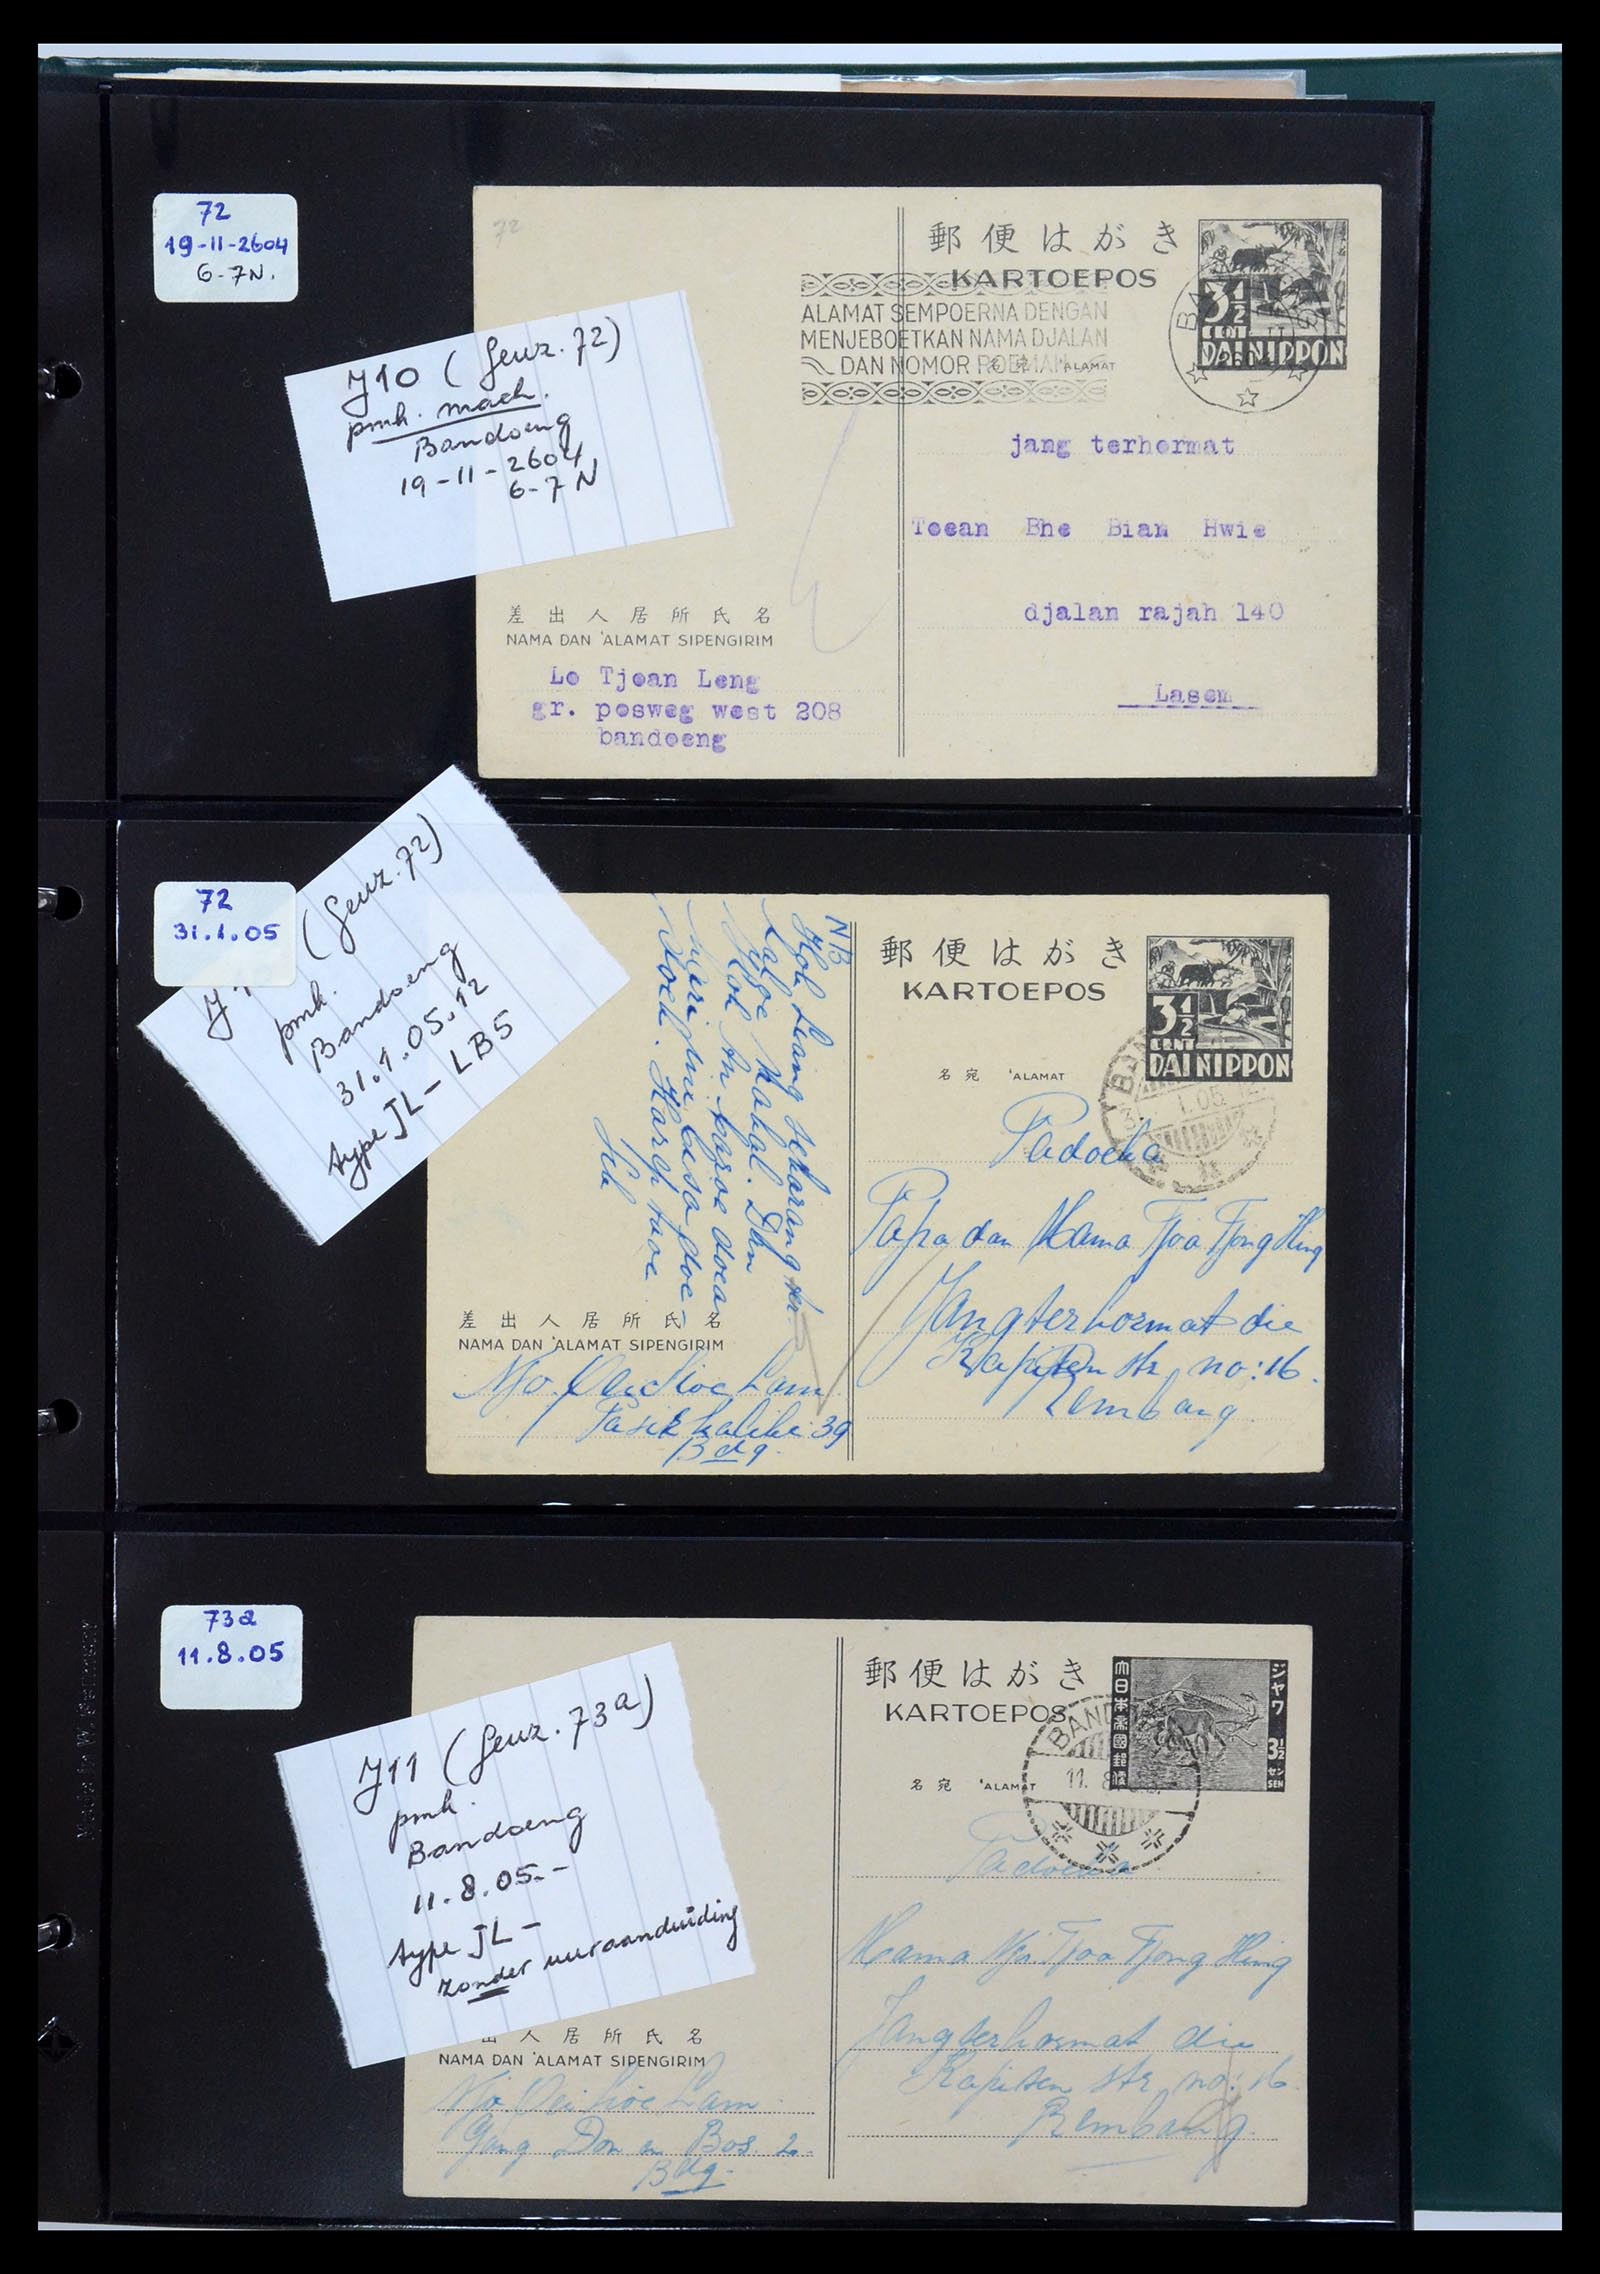 72
19-11-2604
6-7N.
J10 (Geuz. 72)
pmk. mach.
Bandoeng
19-11-2604
6-7 N
72
郵便はがき
KARTOEPOS
ALAMAT SEMPOERNA DENGAN
MENJEBOETKAN NAMA DJALAN
DAN NOMOR ROEMAH
名宛 'ALAMAT
3½
CENT
DAI NIPPON
2604
jang terhormat
Toean Bhe Bian Hwie
djalan rajah 140
Lasem
差出人居所氏名
NAMA DAN 'ALAMAT SIPENGIRIM
Lo Tjoan Leng
gr. posweg west 208
bandoeng
72
31.1.05
(Geuz. 72)
pmk.
Bandoeng
31.1.05.12
type JL - LB5
NB
郵便はがき
KARTOEPOS
名宛 'ALAMAT
3½
CENT
DAI NIPPON
Padoeka
Papa dan Mama Tjoa Tjong Hing
Jangterhormat die
Kapiten str no: 16.
Rembang
差出人居所氏名
NAMA DAN 'ALAMAT SIPENGIRIM
Njo Oei Lioe Lam
Pasirkaliki 39
Bdg.
73a
11.8.05
J11 (Geuz. 73a)
pmk.
Bandoeng
11.8.05.-
type JL -
zonder uuraanduiding
郵便はがき
KARTOEPOS
名宛 'ALAMAT
大日本帝國郵便
ジャワ
3½
セン
SEN
Padoeka
Mama Njo Tjoa Tjong Hing
Jangterhormat die
Kapiten str no: 16
Rembang.
出人居所氏名
NAMA DAN 'ALAMAT SIPENGIRIM
Njo Oei Lioe Lam
Gang Don Bos. 2.
Bdg.
Made in W. Germany